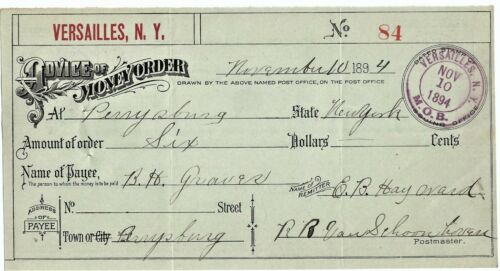 VERSAILLES, N. Y. No 84
ADVICE OF MONEY ORDER November 10 1894
DRAWN BY THE ABOVE NAMED POST OFFICE, ON THE POST OFFICE
VERSAILLES, N.Y.
NOV
10
1894
M.O.B.
ISSUING OFFICE
At Perrysburg State New York
Amount of order Six Dollars Cents
Name of Payee, B. H. Graves NAME OF REMITTER E. B. Hayward
The person to whom the money is to be paid
ADDRESS OF PAYEE
No. Street
Town or City Perrysburg R B Van Schoonhoven
Postmaster.